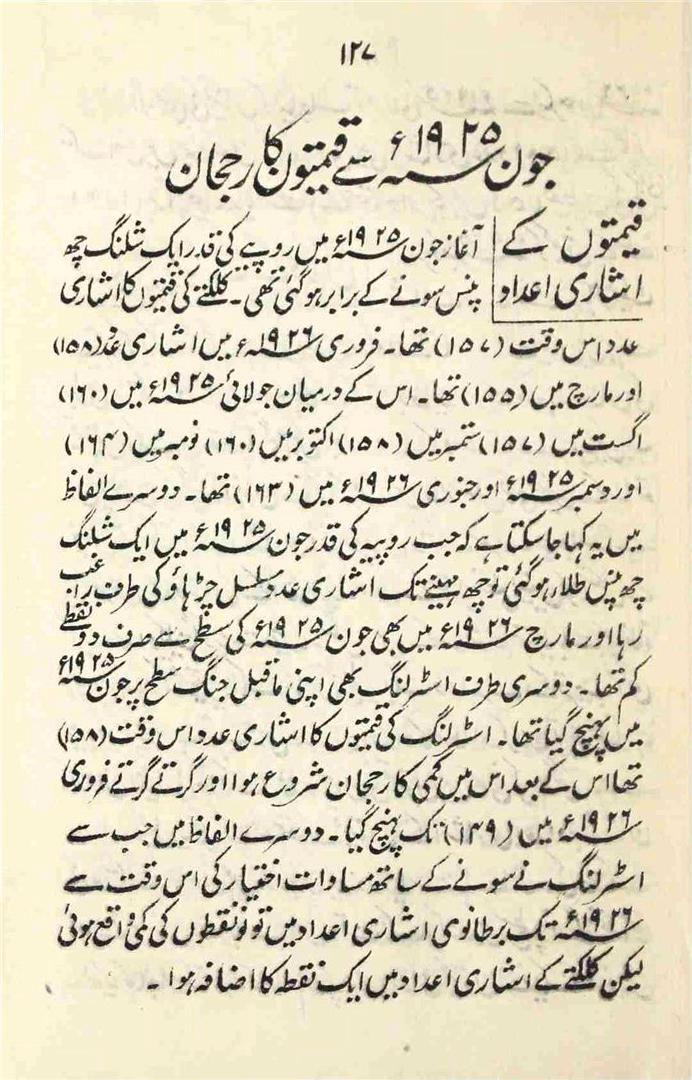 ۱۲۷
جون سنہ ۱۹۲۵ء سے قیمتوں کا رجحان
قیمتوں کے
اشاری اعداد
آغاز جون سنہ ۱۹۲۵ء میں روپیے کی قدر ایک شلنگ چھ
پنس سونے کے برابر ہو گئی تھی۔ کلکتے کی قیمتوں کا اشاری
عدد اس وقت (۱۵۷) تھا۔ فروری سنہ ۱۹۲۶ء میں اشاری عدد (۱۵۸)
اور مارچ میں (۱۵۵) تھا۔ اس کے درمیان جولائی سنہ ۱۹۲۵ء میں (۱۶۰)
اگست میں (۱۵۷) ستمبر میں (۱۵۸) اکتوبر میں (۱۶۰) نومبر میں (۱۶۴)
اور دسمبر سنہ ۱۹۲۵ء اور جنوری سنہ ۱۹۲۶ء میں (۱۶۳) تھا۔ دوسرے الفاظ
میں یہ کہا جا سکتا ہے کہ جب روپیہ کی قدر جون سنہ ۱۹۲۵ء میں ایک شلنگ
چھ پنس طلاء ہو گئی تو چھ مہینے تک اشاری عدد مسلسل چڑھاؤ کی طرف راغب
رہا اور مارچ سنہ ۱۹۲۶ء میں بھی جون سنہ ۱۹۲۵ء کی سطح سے صرف دو نقطے
کم تھا۔ دوسری طرف اسٹرلنگ بھی اپنی ماقبل جنگ سطح پر جون سنہ ۱۹۲۵ء
میں پہنچ گیا تھا۔ اسٹرلنگ کی قیمتوں کا اشاری عدد اس وقت (۱۵۸)
تھا اس کے بعد اس میں کمی کا رجحان شروع ہوا اور گرتے گرتے فروری
سنہ ۱۹۲۶ء میں (۱۴۹) تک پہنچ گیا۔ دوسرے الفاظ میں جب سے
اسٹرلنگ نے سونے کے ساتھ مساوات اختیار کی اس وقت سے
سنہ ۱۹۲۶ء تک برطانوی اشاری اعداد میں تو نو نقطوں کی کمی واقع ہوئی
لیکن کلکتے کے اشاری اعداد میں ایک نقطہ کا اضافہ ہوا۔